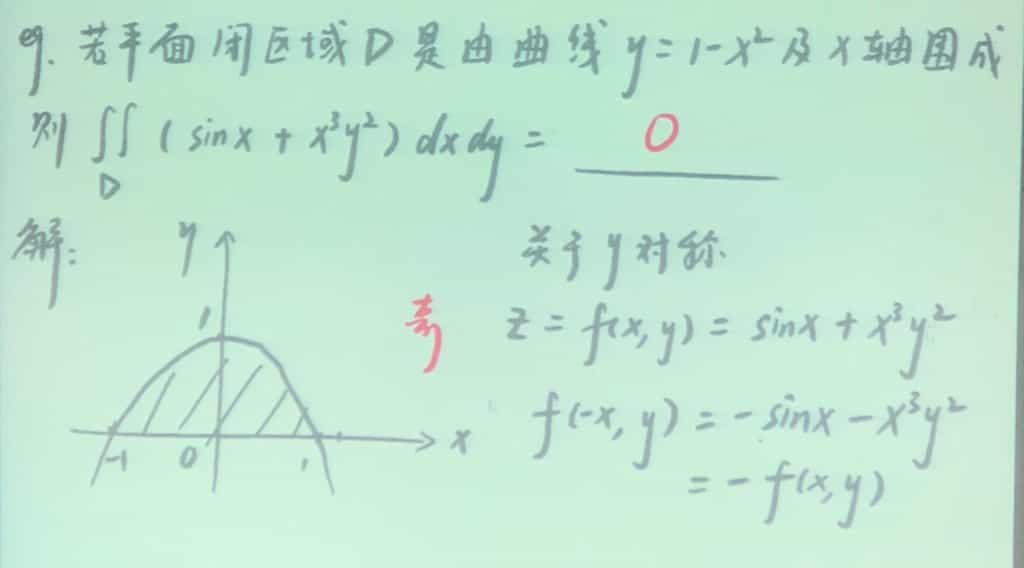 eg. 若平面闭区域D是由曲线 y=1-x² 及 x轴围成
则 ∬_D (sinx + x³y²) dxdy = 0
解:
y
关于y对称.
1
奇
z = f(x,y) = sinx + x³y²
f(-x, y) = -sinx - x³y²
-1 0 1 x
= -f(x,y)